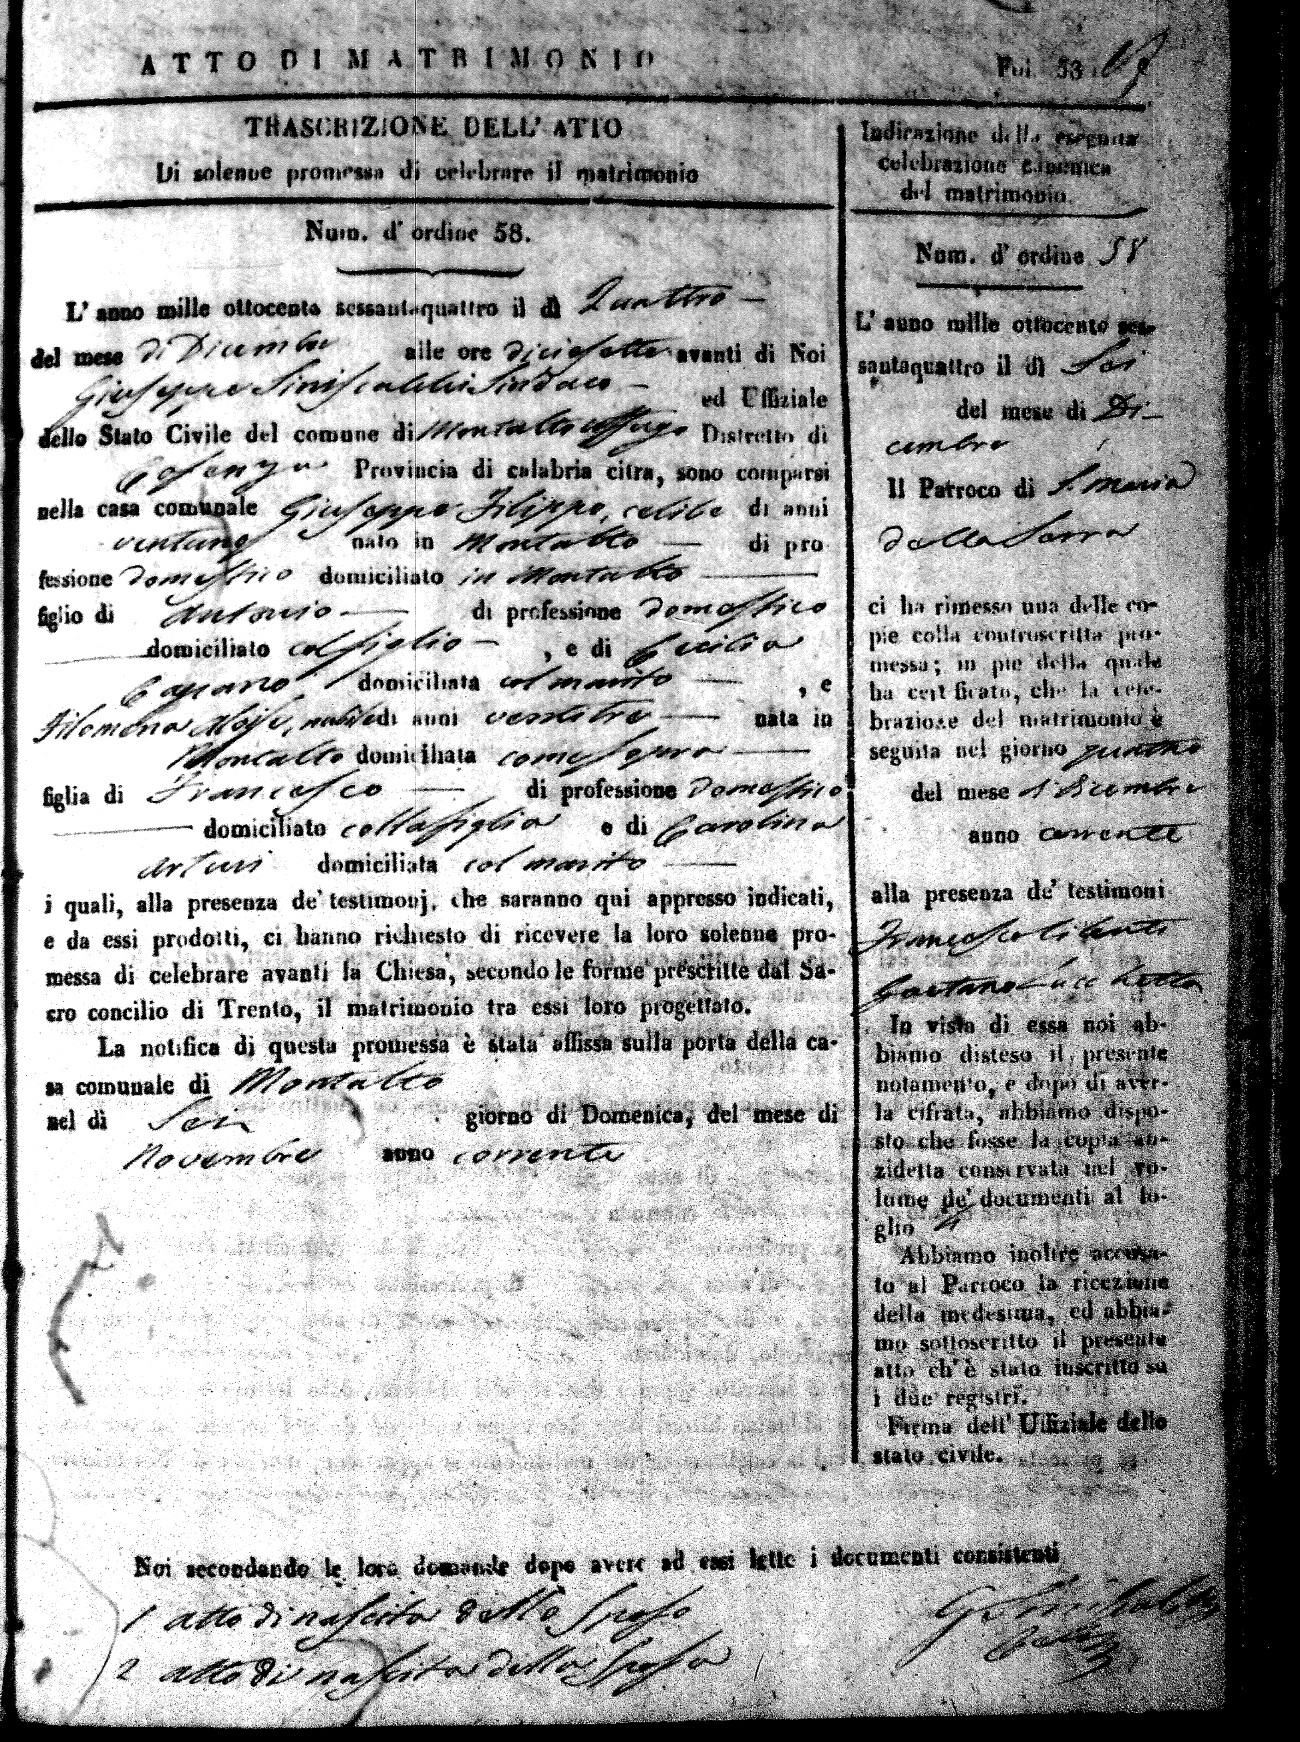 ATTO DI MATRIMONIO
Fol. 53
TRASCRIZIONE DELL' ATTO
Di solenne promessa di celebrare il matrimonio
Num. d' ordine 58.
L' anno mille ottocento sessantaquattro il dì Quattro
del mese di Dicembre alle ore diciesette avanti di Noi
Giuseppe Siniscalchi Sindaco ed Uffiziale
dello Stato Civile del comune di Montalto Uffugo Distretto di
Cosenza Provincia di calabria citra, sono comparsi
nella casa comunale Giuseppe Filippo, celibe di anni
ventuno nato in Montalto di pro
fessione domestico domiciliato in Montalto
figlio di Antonio di professione domestico
domiciliato col figlio , e di Cecilia
domiciliata col marito , e
Filomena Moise, nubile di anni ventitre nata in
Montalto domiciliata come sopra
figlia di Francesco di professione domestico
domiciliato colla figlia e di Carolina
Arturi domiciliata col marito
i quali, alla presenza de' testimonj, che saranno qui appresso indicati,
e da essi prodotti, ci hanno richiesto di ricevere la loro solenne pro-
messa di celebrare avanti la Chiesa, secondo le forme prescritte dal Sa-
cro concilio di Trento, il matrimonio tra essi loro progettato.
La notifica di questa promessa è stata affissa sulla porta della ca-
sa comunale di Montalto
nel dì Sei giorno di Domenica, del mese di
Novembre anno corrente
Noi secondando le loro domande dopo avere ad essi lette i documenti consistenti
1 atto di nascita dello sposo
2 atto di nascita della sposa
Indicazione della eseguita
celebrazione canonica
del matrimonio.
Num. d' ordine 58
L' anno mille ottocento ses-
santaquattro il dì Sei
del mese di Di-
cembre
Il Parroco di S. Maria
della Serra
ci ha rimesso una delle co-
pie colla controscritta pro-
messa; in piè della quale
ha certificato, che la cele-
brazione del matrimonio è
seguita nel giorno quattro
del mese di Dicembre
anno corrente
alla presenza de' testimoni
Francesco
Gaetano
In vista di essa noi ab-
biamo disteso il presente
notamento, e dopo di aver-
la cifrata, abbiamo dispo-
sto che fosse la copia an-
zidetta conservata nel vo-
lume de' documenti al fo-
glio 4
Abbiamo inoltre accusa-
to al Parroco la ricezione
della medesima, ed abbia-
mo sottoscritto il presente
atto ch' è stato inscritto su
i due registri.
Firma dell' Uffiziale dello
stato civile.